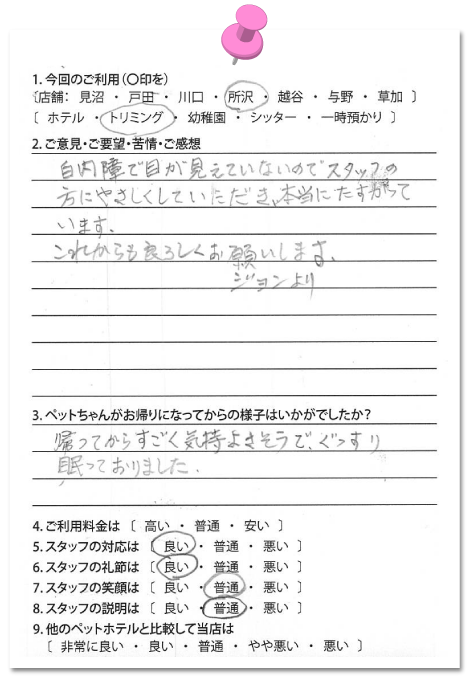 1. 今回のご利用（〇印を）
〔店舗： 見沼 ・ 戸田 ・ 川口 ・ 所沢 ・ 越谷 ・ 与野 ・ 草加 〕
〔 ホテル ・ トリミング ・ 幼稚園 ・ シッター ・ 一時預かり 〕
2. ご意見・ご要望・苦情・ご感想
白内障で目が見えていないのでスタッフの
方にやさしくしていただき、本当にたすかって
います。
これからも良ろしくお願いします。
ジョンより
3. ペットちゃんがお帰りになってからの様子はいかがでしたか？
帰ってからすごく気持よさそうで、ぐっすり
眠っておりました。
4. ご利用料金は 〔 高い ・ 普通 ・ 安い 〕
5. スタッフの対応は 〔 良い ・ 普通 ・ 悪い 〕
6. スタッフの礼節は 〔 良い ・ 普通 ・ 悪い 〕
7. スタッフの笑顔は 〔 良い ・ 普通 ・ 悪い 〕
8. スタッフの説明は 〔 良い ・ 普通 ・ 悪い 〕
9. 他のペットホテルと比較して当店は
〔 非常に良い ・ 良い ・ 普通 ・ やや悪い ・ 悪い 〕